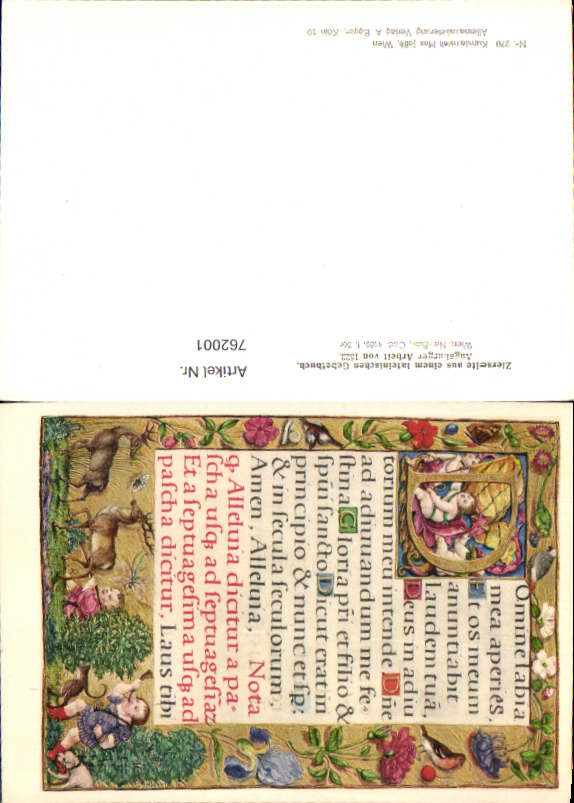 Nr. 270 Kunstanstalt Max Jaffé, Wien
Alleinauslieferung Verlag A. Egger, Köln 10
Artikel Nr.
762001
Zierseite aus einem lateinischen Gebetbuch.
Augsburger Arbeit von 1522.
Wien, Nat.-Bibl., Cod.
DOmine labia
mea aperies,
Et os meum
annūtiabit
laudem tuā,
Deus in adiu
torium meū intende Dn̄e
ad adiuuandum me fe⸗
stina Gloria pr̄i et filio &
spiritui sancto Sicut erat in
principio & nunc et sp̄:
& in secula seculorum,
Amen, Alleluia, Nota
q. Alleluia dicitur a pa⸗
scha usq; ad septuagesimā
Et a septuagesima usq; ad
pascha dicitur, Laus tibi